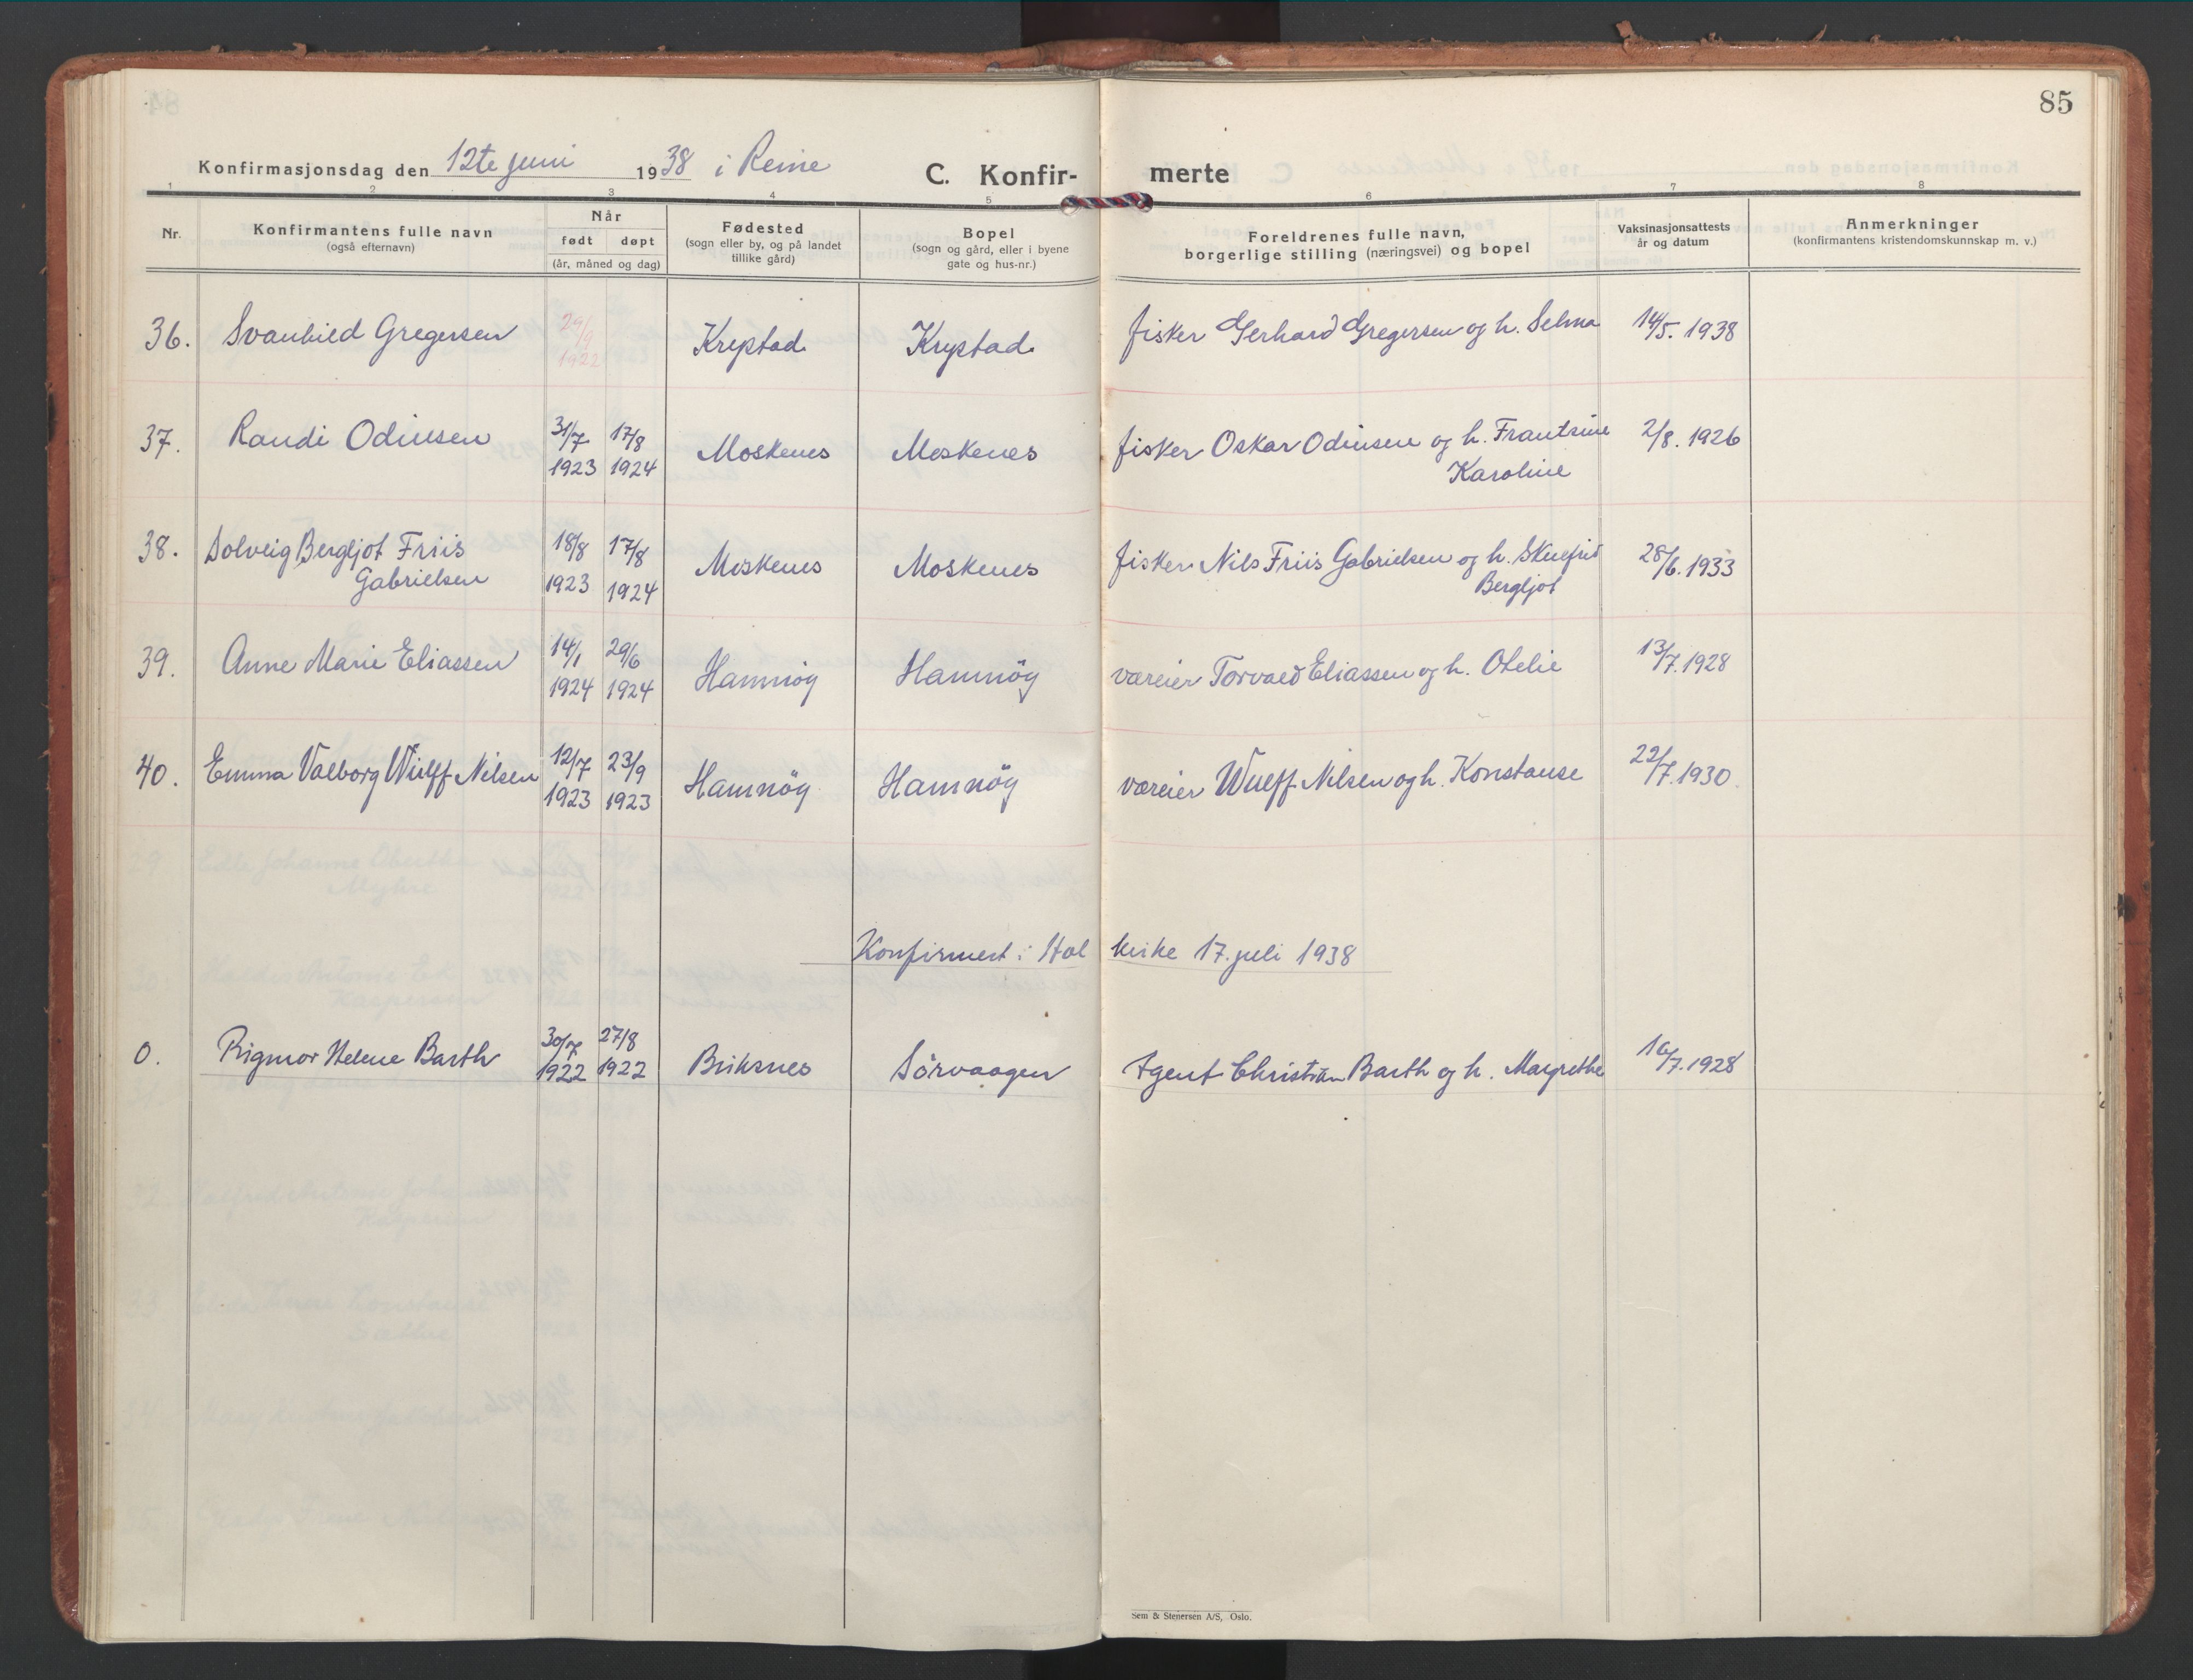 85
Konfirmasjonsdag den 12te juni 1938 i Reine C. Konfir- merte
1 2 3 4 5 6 7 8
Nr. Konfirmantens fulle navn (også efternavn) Når født døpt (år, måned og dag) Fødested (sogn eller by, og på landet tillike gård) Bopel (sogn og gård, eller i byene gate og hus-nr.) Foreldrenes fulle navn, borgerlige stilling (næringsvei) og bopel Vaksinasjonsattests år og datum Anmerkninger (konfirmantens kristendomskunnskap m. v.)
36. Svanhild Gregersen 29/9 1922 Krystad Krystad fisker Gerhard Gregersen og h. Selma 14/5. 1938
37. Randi Odinsen 31/7 1923 17/8 1924 Moskenes Moskenes fisker Oskar Odinsen og h. Frantsine
Karoline 2/8. 1926
38. Solveig Bergljot Friis
Gabrielsen 18/8 1923 17/8 1924 Moskenes Moskenes fisker Nils Friis Gabrielsen og h.
Bergljot 28/6. 1933
39. Anne Marie Eliassen 14/1 1924 29/6 1924 Hamnöy Hamnöy væreier Torvald Eliassen og h. Otelie 13/7. 1928
40. Emma Valborg Wulff Nilsen 12/7 1923 23/9 1923 Hamnöy Hamnöy væreier Wulff Nilsen og h. Konstanse 22/7. 1930.
Konfirmert i Hol kirke 17. juli 1938
0. Rigmor Helene Barth 30/7 1922 27/8 1922 Buksnes Sörvaagen Agent Christian Barth og h. Margrethe 16/7. 1928
Sem & Stenersen A/S, Oslo.